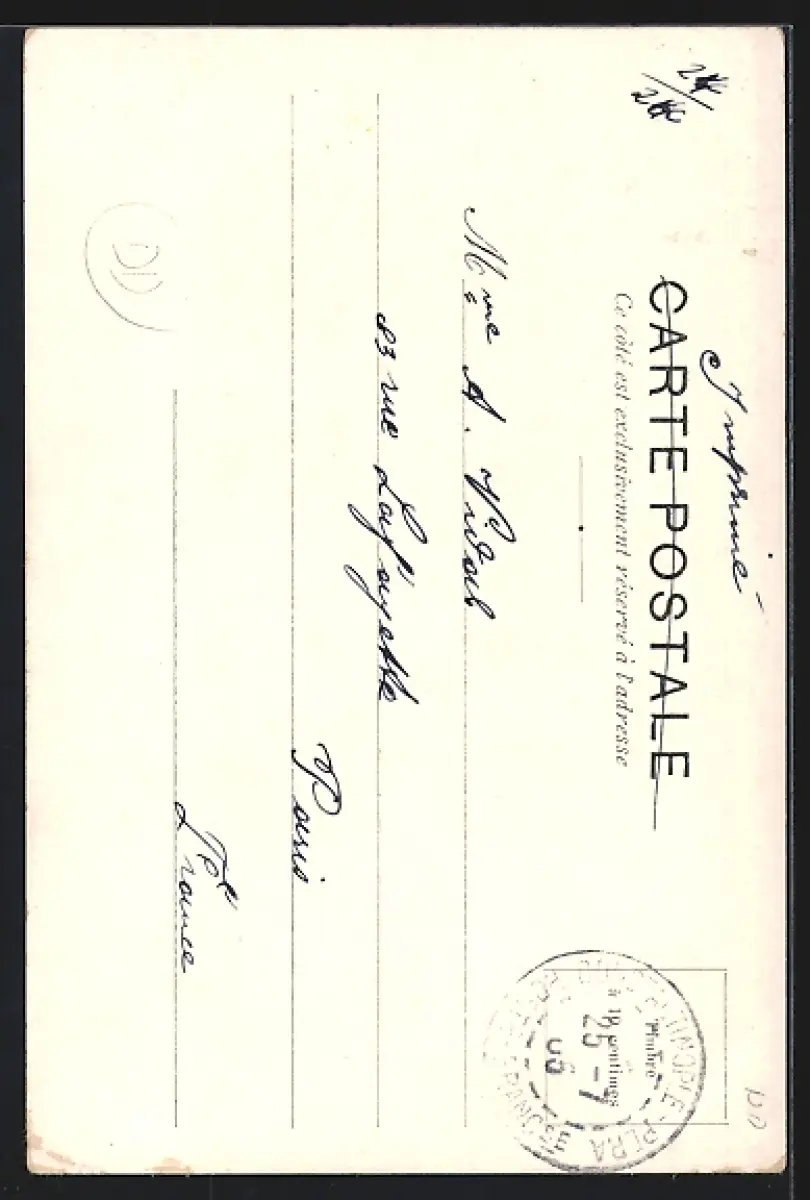 Imprimé
CARTE POSTALE
Ce côté est exclusivement réservé à l'adresse
Timbre
à 10 centimes
CONSTANTINOPLE-PERA
POSTE FRANÇAISE
25 -7
05
Mme A. Vidal
83 rue Lafayette
Paris
France
DD